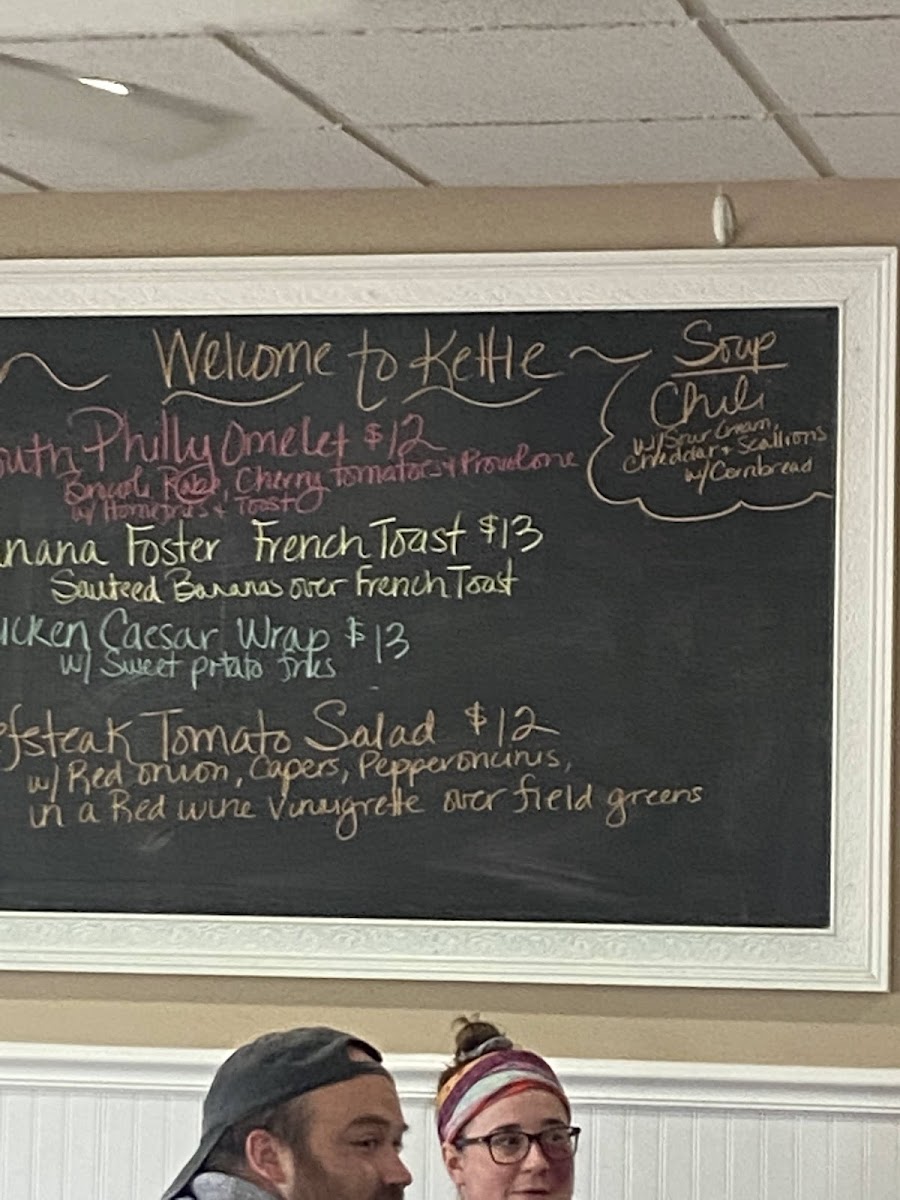 Welcome to Kettle
outh Philly Omelet $12
Brocoli Rabe, Cherry Tomatoes + Provolone
w/ Homefries + Toast
nana Foster French Toast $13
Sauteed Bananas over French Toast
icken Caesar Wrap $13
w/ Sweet potato fries
efsteak Tomato Salad $12
w/ Red onion, Capers, Pepperoncinis,
in a Red wine Vinaigrette over field greens
Soup
Chili
w/ Sour Cream,
Cheddar + Scallions
w/ Cornbread